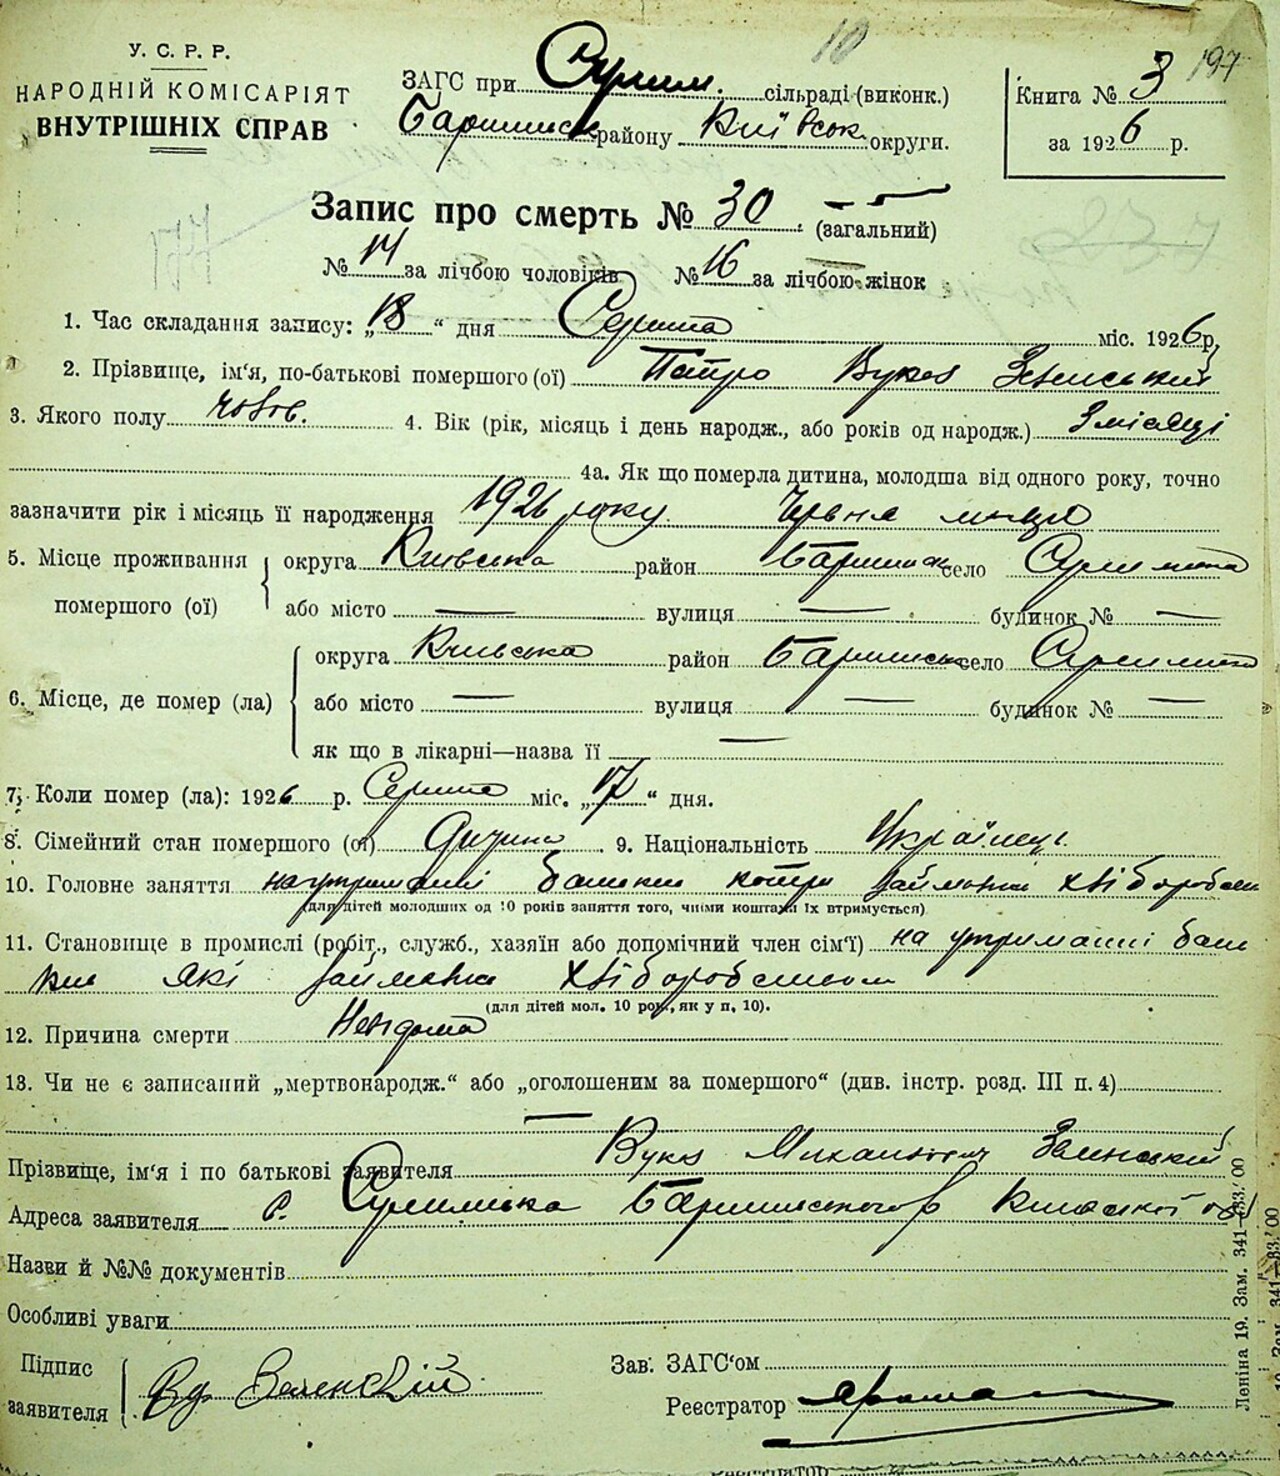 10
197
У. С. Р. Р.
НАРОДНІЙ КОМІСАРІЯТ
ВНУТРІШНІХ СПРАВ
ЗАГС при Сулим. сільраді (виконк.)
Баришівск району Київськ. округи.
Книга № 3
за 1926 р.
177
237
Запис про смерть № 30. (загальний)
№ 14 за лічбою чоловіків № 16 за лічбою жінок
1. Час складання запису: „18“ дня Серпня міс. 1926 р.
2. Прізвище, ім‘я, по-батькові помершого (ої) Петро Зеленський
3. Якого полу чолов. 4. Вік (рік, місяць і день народж., або років од народж.) 3 місяці
4а. Як що померла дитина, молодша від одного року, точно
зазначити рік і місяць її народження 1926 року Червня місяця
5. Місце проживання помершого (ої) округа Київська район Баришівськ село Сулимівка
або місто — вулиця — будинок № —
6. Місце, де помер (ла) округа Київська район Баришівськ село Сулимівка
або місто — вулиця — будинок № —
як що в лікарні—назва її —
7. Коли помер (ла): 1926 р. Серпня міс. „17“ дня.
8. Сімейний стан помершого (ої) Дитина. 9. Національність Українець.
10. Головне заняття на утриманні батьків котрі займались хліборобст
(для дітей молодших од 10 років заняття того, чиїми коштами їх втримується)
11. Становище в промислі (робіт., служб., хазяїн або допомічний член сім‘ї) на утриманні бать
ків які займались хліборобством
(для дітей мол. 10 рок., як у п. 10).
12. Причина смерти Невідома
13. Чи не є записаний „мертвонародж.“ або „оголошеним за помершого“ (див. інстр. розд. III п. 4)
—
Прізвище, ім‘я і по батькові заявителя Михайлович Зеленський
Адреса заявителя с. Сулимівка Баришівського р Київської ок
Назви й №№ документів
Особливі уваги
Підпис заявителя Зеленський
Зав. ЗАГС‘ом
Реєстратор
Леніна 19. Зам. 341—